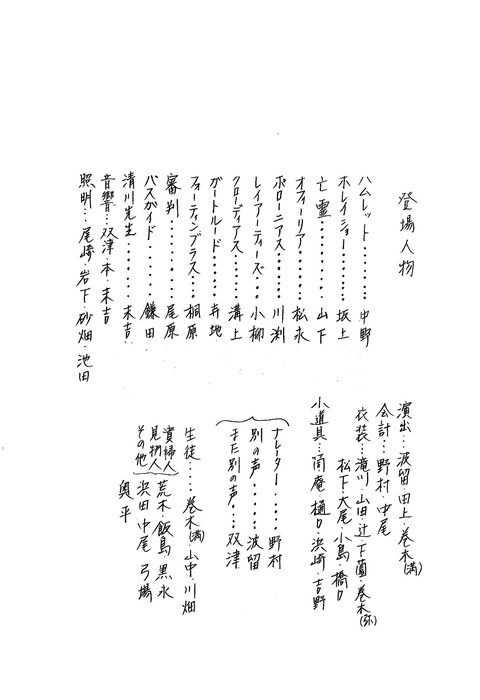 登場人物
ハムレット………中野
ホレイショー………坂上
亡霊………山下
オフィーリア………松永
ポローニアス………川渕
レイアーティーズ………小柳
クローディアス………溝上
ガートルード………井地
フォーティンブラス………桐原
審判………尾原
バスガイド………鎌田
清川先生………末吉
音響…双津・本・末吉
照明…尾崎・岩下・砂畑・池田
演出…波留・田上・巻木(満)
会計…野村・中尾
衣装…滝川・山田・辻・下薗・巻木(弥)
松下・大尾・小島・橋口
小道具…筒・庵・樋口・浜崎・吉野
ナレーター………野村
別の声………波留
また別の声………双津
生徒………巻木(満)・山中・川畑
貴婦人
見物人
その他
荒木・飯島 黒永
浜田 中尾 弓場
奥平